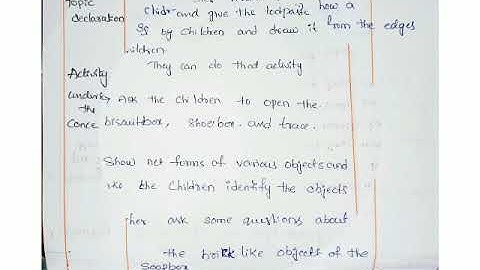 Topic
declaration
and give the how a
by children and draw it from the edges
They can do that activity
Activity
the → Ask the children to open the
Conce bisauitbox, shoebox and trace.
Show net forms of various objects and
the children identify the objects
her ask some questions about
the brick like objects of the
Soapbox